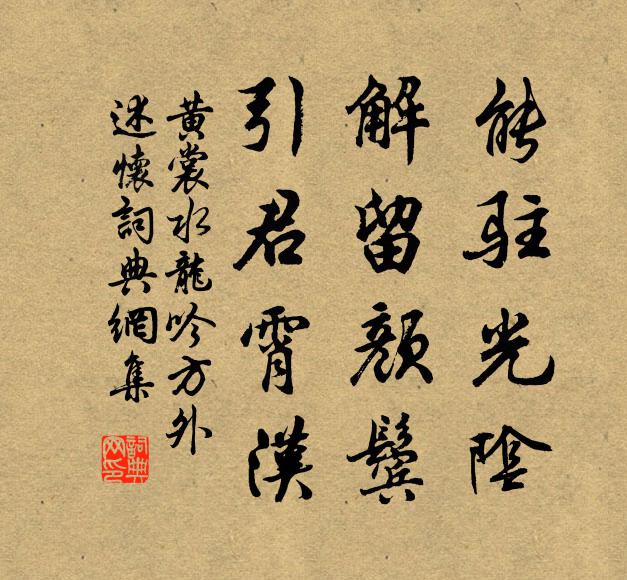 能駐光陰
解留顏鬢
引君霄漢
黃裳水龍吟方外
述懷詞典網集
詞典網印